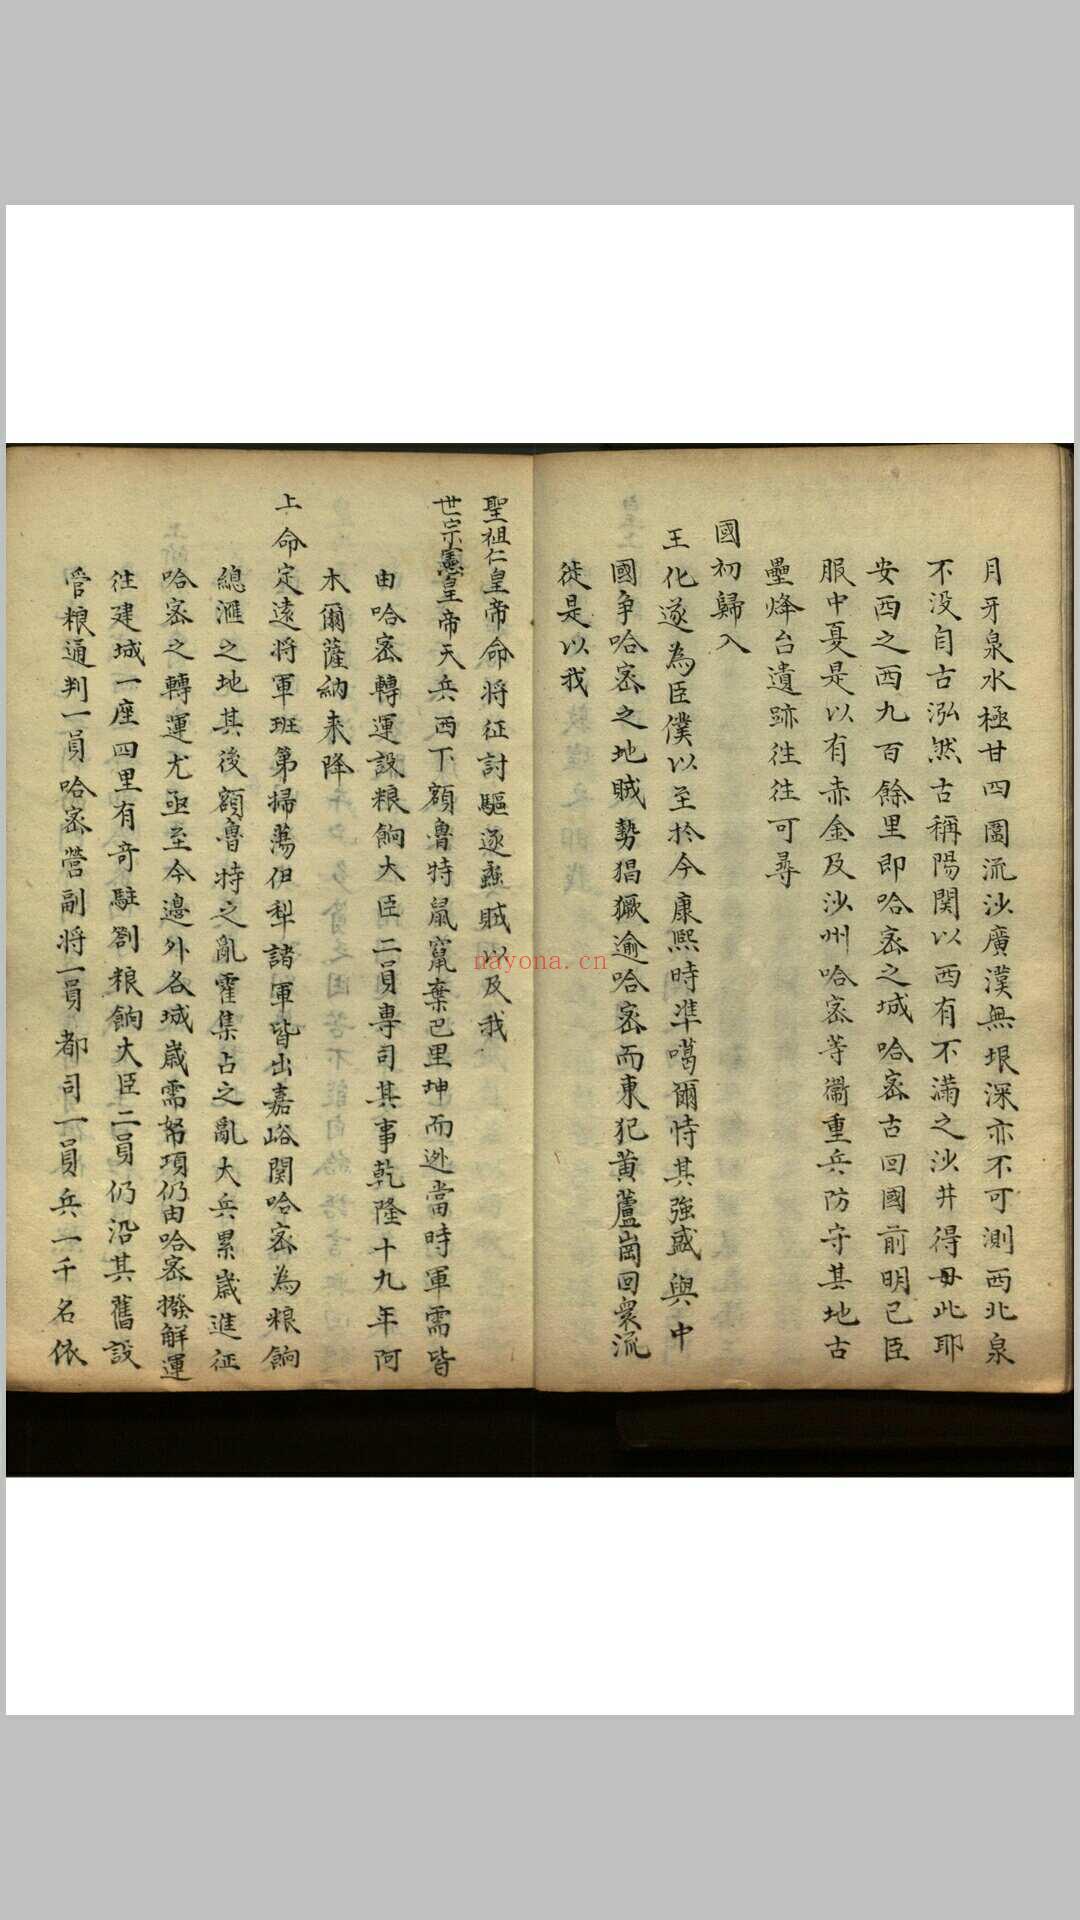 月牙泉水極甘四圍流沙廣漠無垠深亦不可測西北泉
不没自古泓然古稱陽関以西有不滿之沙井得毋此耶
安西之西九百餘里即哈宻之城哈宻古回國前明已臣
服中夏是以有赤金及沙州哈宻等衞重兵防守其地古
壘烽台遺跡往往可尋
國初歸入
王化遂為臣僕以至於今康熙時凖噶爾恃其強盛與中
國争哈宻之地賊勢猖獗逾哈宻而東犯黄蘆崗回衆流
徙是以我
聖祖仁皇帝命将征討驅逐蟊賊以及我
世宗憲皇帝天兵西下額魯特鼠竄棄巴里坤而迯當時軍需皆
由哈宻轉運設粮餉大臣二員専司其事乾隆十九年阿
木爾薩納来降
上命定遠将軍班第掃蕩伊犁諸軍皆出嘉峪関哈宻為粮餉
總滙之地其後額魯特之亂霍集占之亂大兵累歳進征
哈宻之轉運尤亟至今邉外各城歳需帑項仍由哈宻撥解運
往建城一座四里有奇駐劄粮餉大臣二員仍沿其舊設
管粮通判一員哈宻營副将一員都司一員兵一千名依
nayona.cn